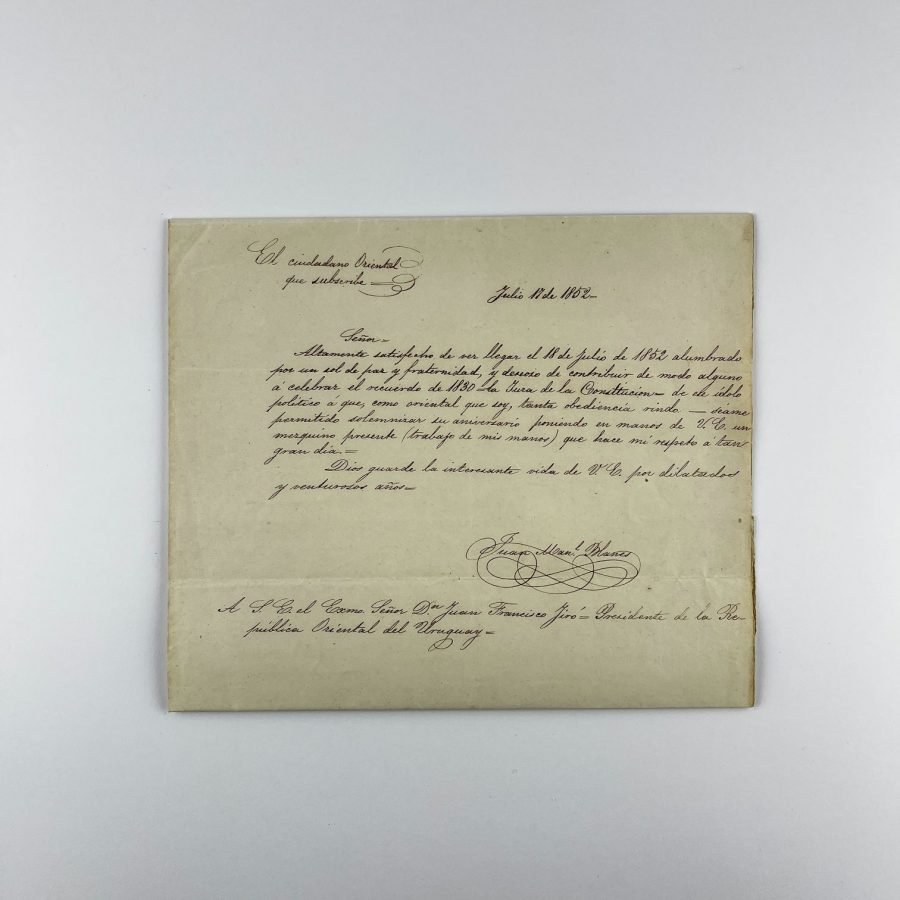 El ciudadano Oriental
que subscribe =
Julio 17 de 1852 -
Señor =
Altamente satisfecho de ver llegar el 18 de julio de 1852 alumbrado
por un sol de paz y fraternidad, y deseoso de contribuir de modo alguno
á celebrar el recuerdo de 1830 - la Jura de la Constitucion - de ese idolo
político á que, como oriental que soy, tanta obediencia rindo - seame
permitido solemnizar su aniversario poniendo en manos de V. E. un
mezquino presente (trabajo de mis manos) que hace mi respeto á tan
gran dia. =
Dios guarde la interesante vida de V. E. por dilatados
y venturosos años =
Juan Man.l Blanes
A S. E. el Exmo. Señor Dn Juan Francisco Jiró = Presidente de la Re-
pública Oriental del Uruguay =